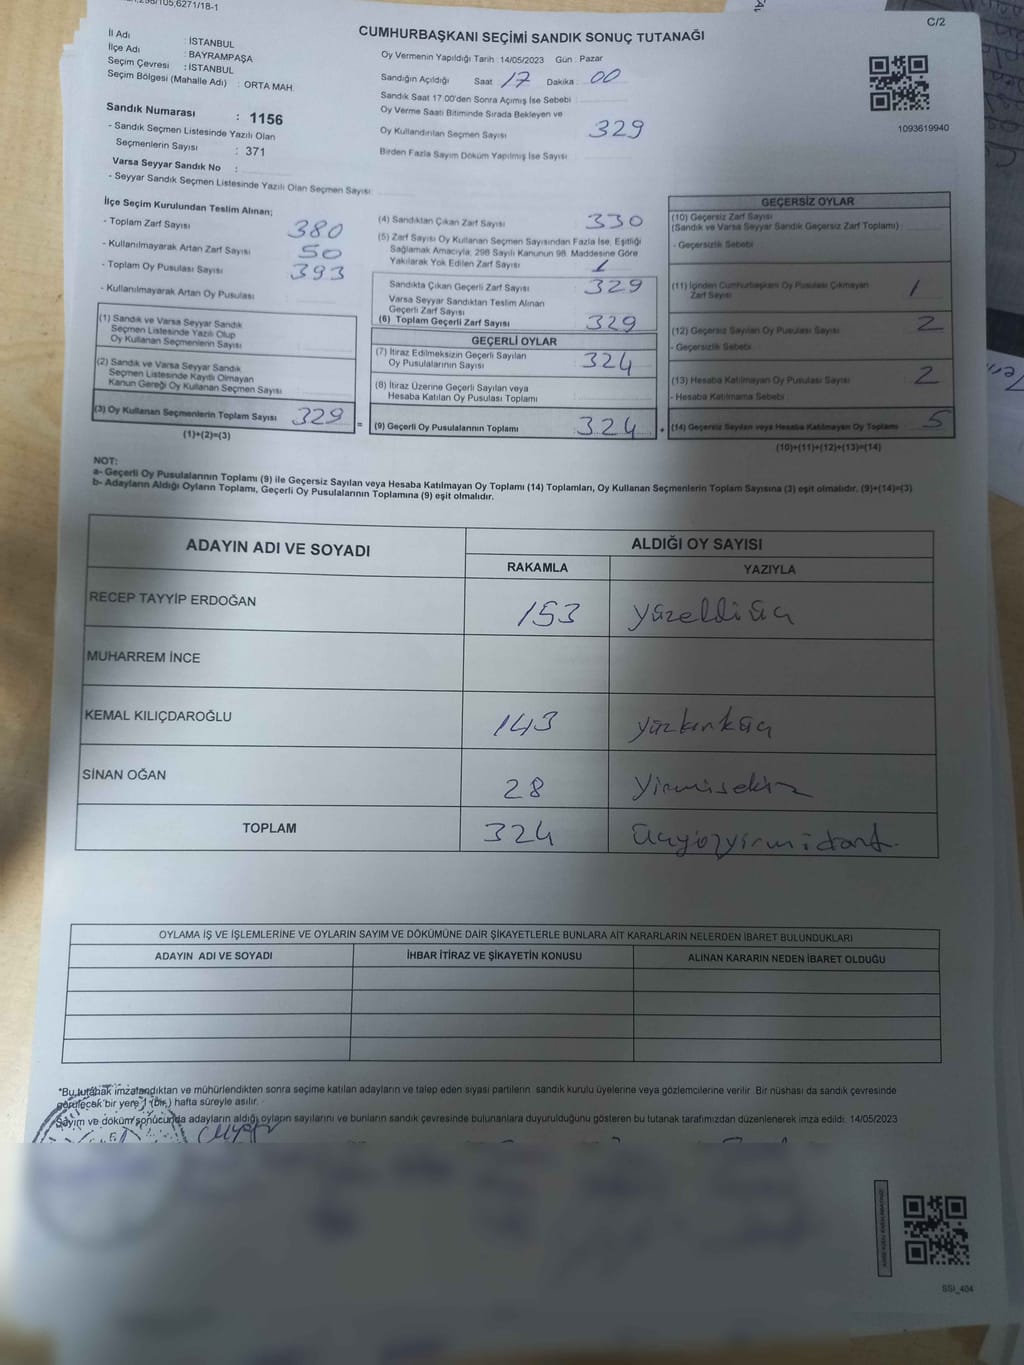 C/2
CUMHURBAŞKANI SEÇİMİ SANDIK SONUÇ TUTANAĞI
İl Adı : İSTANBUL
İlçe Adı : BAYRAMPAŞA
Seçim Çevresi : İSTANBUL
Seçim Bölgesi (Mahalle Adı) : ORTA MAH.
Sandık Numarası : 1156
- Sandık Seçmen Listesinde Yazılı Olan
Seçmenlerin Sayısı : 371
Varsa Seyyar Sandık No :
- Seyyar Sandık Seçmen Listesinde Yazılı Olan Seçmen Sayısı:
Oy Vermenin Yapıldığı Tarih : 14/05/2023 Gün : Pazar
Sandığın Açıldığı Saat 17 Dakika 00
Sandık Saat 17:00'den Sonra Açımış İse Sebebi :
Oy Verme Saati Bitiminde Sırada Bekleyen ve
Oy Kullandırılan Seçmen Sayısı 329
Birden Fazla Sayım Döküm Yapılmış İse Sayısı
1093619940
İlçe Seçim Kurulundan Teslim Alınan;
- Toplam Zarf Sayısı 380
- Kullanılmayarak Artan Zarf Sayısı 50
- Toplam Oy Pusulası Sayısı 393
- Kullanılmayarak Artan Oy Pusulası
(1) Sandık ve Varsa Seyyar Sandık
Seçmen Listesinde Yazılı Olup
Oy Kullanan Seçmenlerin Sayısı
(2) Sandık ve Varsa Seyyar Sandık
Seçmen Listesinde Kayıtlı Olmayan
Kanun Gereği Oy Kullanan Seçmen Sayısı
(3) Oy Kullanan Seçmenlerin Toplam Sayısı 329 =
(1)+(2)=(3)
(4) Sandıktan Çıkan Zarf Sayısı 330
(5) Zarf Sayısı Oy Kullanan Seçmen Sayısından Fazla İse, Eşitliği
Sağlamak Amacıyla; 298 Sayılı Kanunun 98. Maddesine Göre
Yakılarak Yok Edilen Zarf Sayısı 1
Sandıkta Çıkan Geçerli Zarf Sayısı 329
Varsa Seyyar Sandıktan Teslim Alınan
Geçerli Zarf Sayısı
(6) Toplam Geçerli Zarf Sayısı 329
GEÇERLİ OYLAR
(7) İtiraz Edilmeksizin Geçerli Sayılan
Oy Pusulalarının Sayısı 324
(8) İtiraz Üzerine Geçerli Sayılan veya
Hesaba Katılan Oy Pusulası Toplamı
(9) Geçerli Oy Pusulalarının Toplamı 324 +
GEÇERSİZ OYLAR
(10) Geçersiz Zarf Sayısı
(Sandık ve Varsa Seyyar Sandık Geçersiz Zarf Toplamı)
- Geçersizlik Sebebi
(11) İçinden Cumhurbaşkanı Oy Pusulası Çıkmayan
Zarf Sayısı 1
(12) Geçersiz Sayılan Oy Pusulası Sayısı 2
- Geçersizlik Sebebi
(13) Hesaba Katılmayan Oy Pusulası Sayısı 2
- Hesaba Katılmama Sebebi
(14) Geçersiz Sayılan veya Hesaba Katılmayan Oy Toplamı 5
(10)+(11)+(12)+(13)=(14)
NOT:
a- Geçerli Oy Pusulalarının Toplamı (9) ile Geçersiz Sayılan veya Hesaba Katılmayan Oy Toplamı (14) Toplamları, Oy Kullanan Seçmenlerin Toplam Sayısına (3) eşit olmalıdır. (9)+(14)=(3)
b- Adayların Aldığı Oyların Toplamı, Geçerli Oy Pusulalarının Toplamına (9) eşit olmalıdır.
ADAYIN ADI VE SOYADI ALDIĞI OY SAYISI
RAKAMLA YAZIYLA
RECEP TAYYİP ERDOĞAN 153 yüzelliüç
MUHARREM İNCE
KEMAL KILIÇDAROĞLU 143 yüzkırküç
SİNAN OĞAN 28 yirmisekiz
TOPLAM 324 üçyüzyirmidört
OYLAMA İŞ VE İŞLEMLERİNE VE OYLARIN SAYIM VE DÖKÜMÜNE DAİR ŞİKAYETLERLE BUNLARA AİT KARARLARIN NELERDEN İBARET BULUNDUKLARI
ADAYIN ADI VE SOYADI İHBAR İTİRAZ VE ŞİKAYETİN KONUSU ALINAN KARARIN NEDEN İBARET OLDUĞU
*Bu tutanak imzalandıktan ve mühürlendikten sonra seçime katılan adayların ve talep eden siyasi partilerin, sandık kurulu üyelerine veya gözlemcilerine verilir. Bir nüshası da sandık çevresinde
görülecek bir yere 1 (bir) hafta süreyle asılır.
Sayım ve döküm sonucunda adayların aldığı oyların sayılarını ve bunların sandık çevresinde bulunanlara duyurulduğunu gösteren bu tutanak tarafımızdan düzenlenerek imza edildi. 14/05/2023
SSI_404